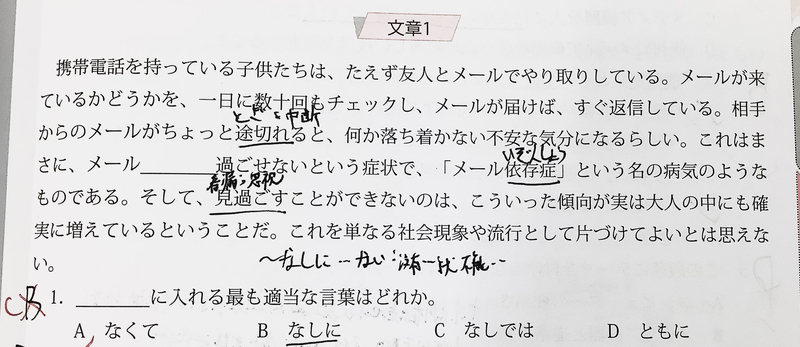 文章1
携帯電話を持っている子供たちは、たえず友人とメールでやり取りしている。メールが来
ているかどうかを、一日に数十回もチェックし、メールが届けば、すぐ返信している。相手
とぎ 中断
からのメールがちょっと途切れると、何か落ち着かない不安な気分になるらしい。これはま
いぞんしょう
さに、メール________過ごせないという症状で、「メール依存症」という名の病気のような
看漏、忽视
ものである。そして、見過ごすことができないのは、こういった傾向が実は大人の中にも確
実に増えているということだ。これを単なる社会現象や流行として片づけてよいとは思えな
い。
〜なしに…ない:
B 1. ________に入れる最も適当な言葉はどれか。
A なくて B なしに C なしでは D ともに